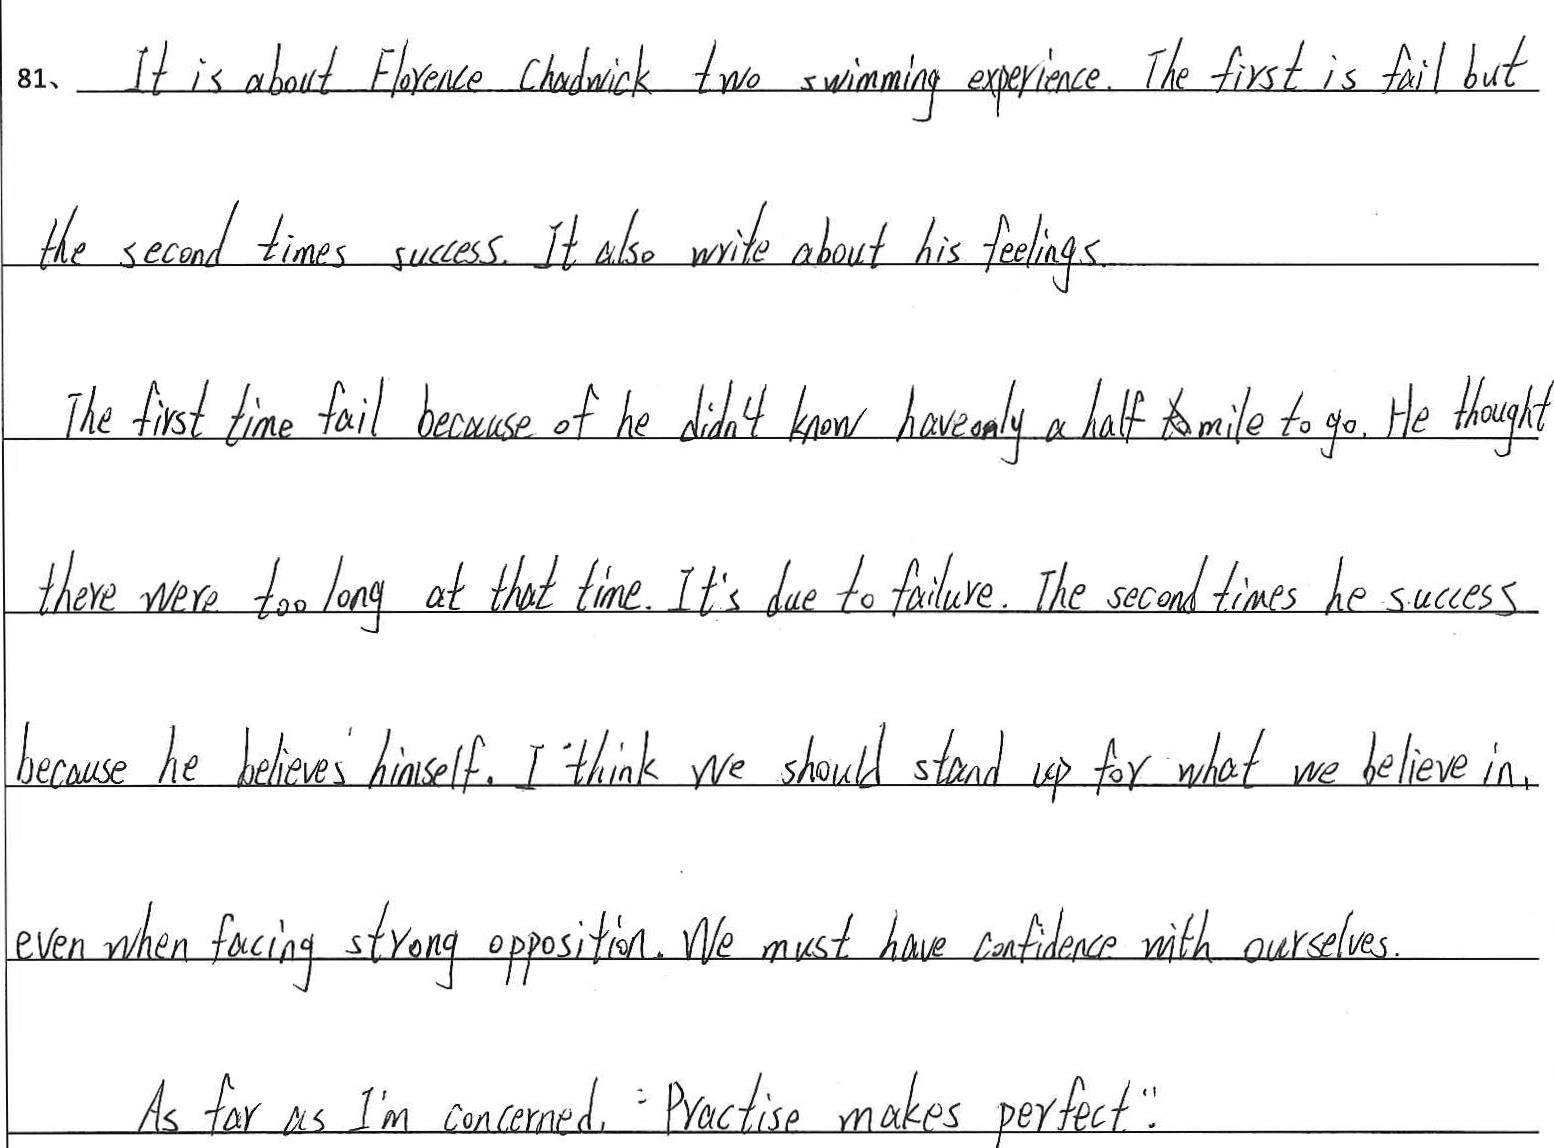 81、 It is about Florence Chadwick two swimming experience. The first is fail but
the second times success. It also write about his feelings.
The first time fail because of he didn't know have only a half mile to go. He thought
there were too long at that time. It's due to failure. The second times he success
because he believes himself. I think we should stand up for what we believe in,
even when facing strong opposition. We must have confidence with ourselves.
As far as I'm concerned, "Practise makes perfect".